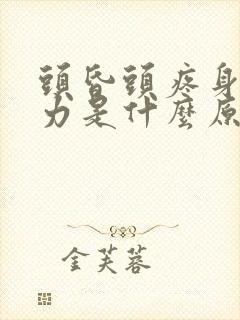 頭昏頭疼身
力是什麼原
金芙蓉